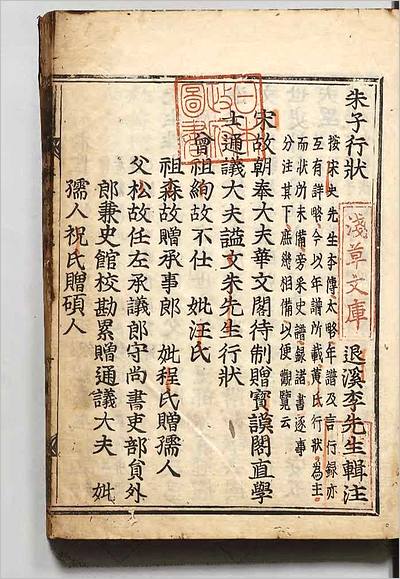 朱子行狀 退溪李先生輯注
按宋史先生本傳太略年譜及言行錄亦
互有詳略今以年譜所載黃氏行狀為主
而狀所未備旁采史譜錄諸書逐事
分注其下庶幾相備以便觀覽云
宋故朝奉大夫華文閣待制贈寶謨閣直學
士通議大夫謚文朱先生行狀
曾祖絢故不仕 妣汪氏
祖森故贈承事郎 妣程氏贈孺人
父松故任左承議郎守尚書吏部員外
郎兼史館校勘累贈通議大夫 妣
孺人祝氏贈碩人
淺草文庫
日本
政府
圖書